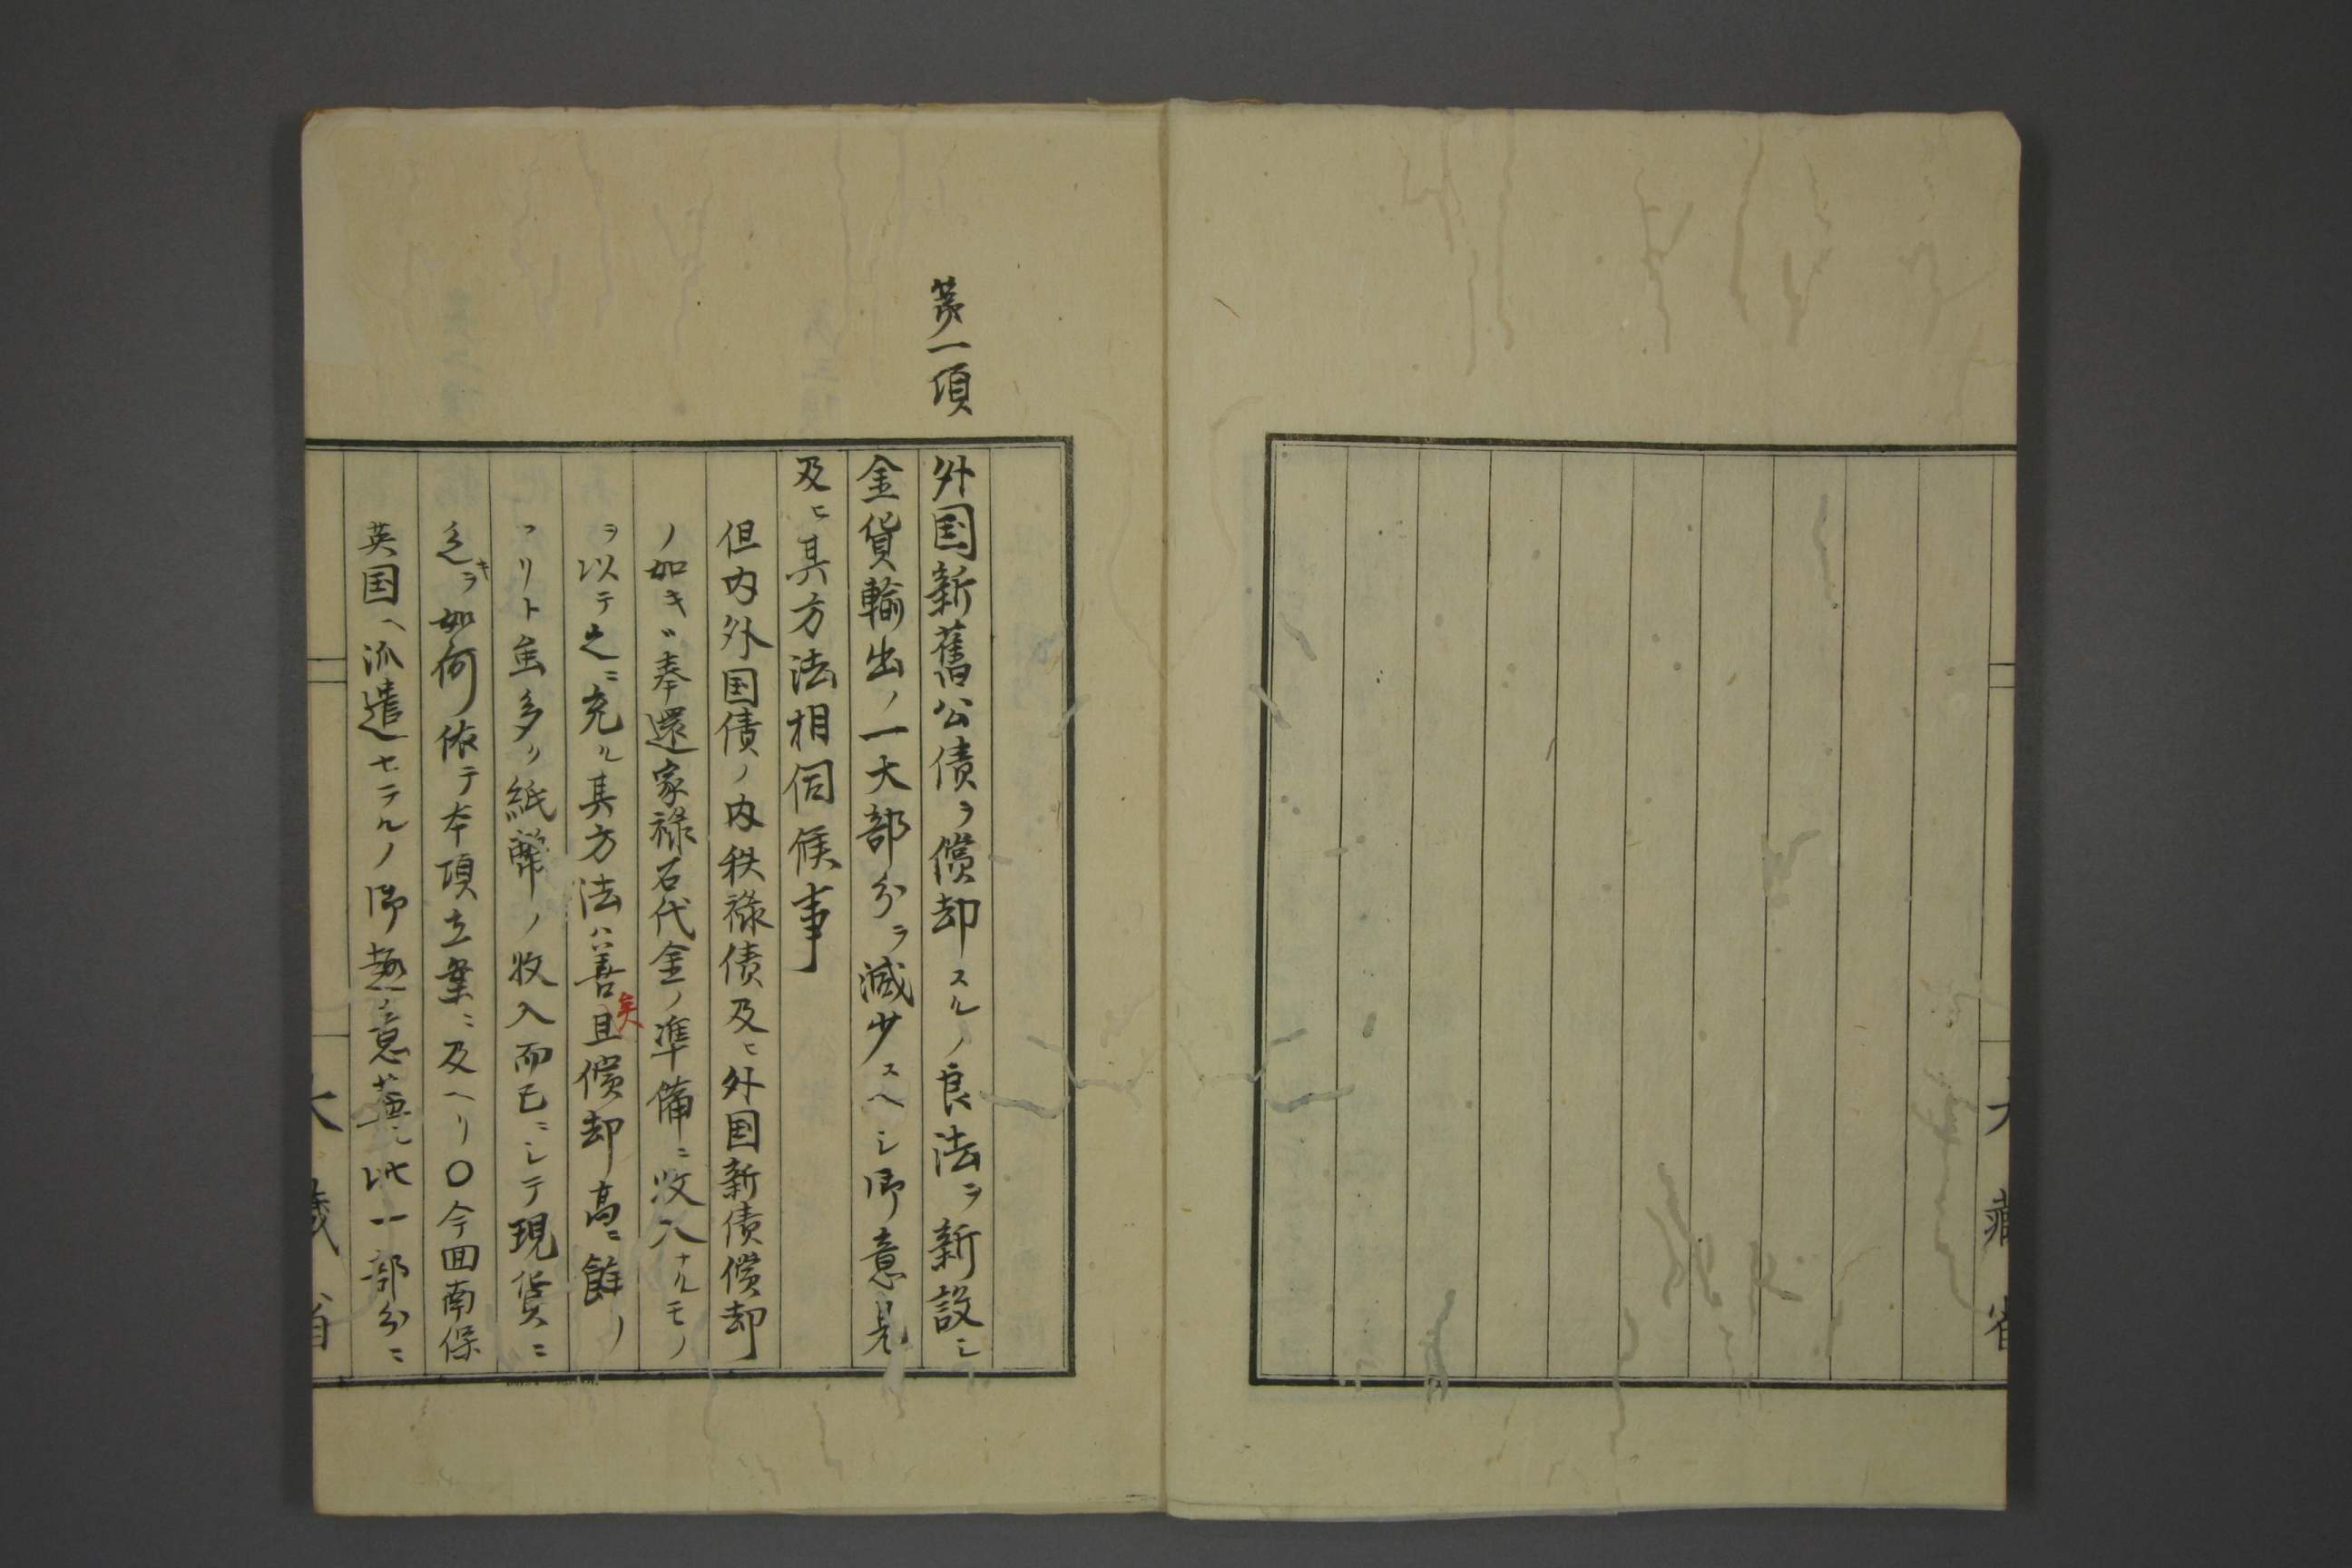 大藏省
第一項
外国新舊公債ヲ償却スルノ良法ヲ新設シ
金貨輸出ノ一大部分ヲ減少スヘシ御意見
及ヒ其方法相伺候事
但内外国債ノ内秩祿債及ヒ外国新債償却
ノ如キハ奉還家祿石代金ノ準備ニ收入ナルモノ
ヲ以テ之ニ充ル其方法ハ善矣且償却高ニ餘リ
アリト虽多ク紙幣ノ收入而已ニシテ現貨ニ
乏キヲ如何依テ本項立案ニ及ヘリ〇今囬南保
英国ヘ派遣セラルノ御趣意蓋シ此一部分ニ
大藏省